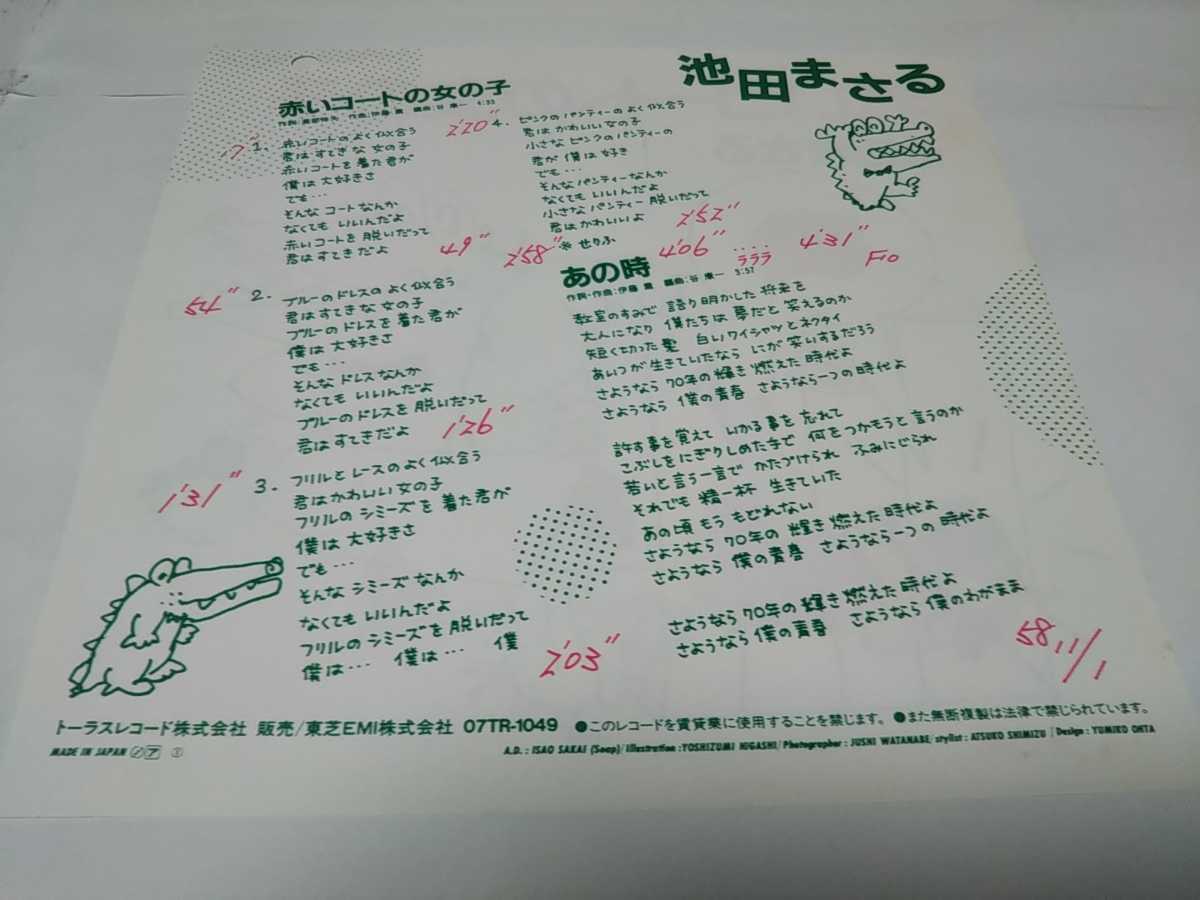 池田まさる
赤いコートの女の子
作曲:伊藤 薫 4:35
17"
1. 赤いコートのよく似合う
君はすてきな女の子
赤いコートを着た君が
僕は大好きさ
でも…
そんなコートなんか
なくてもいいんだよ
赤いコートを脱いだって
君はすてきだよ
49"
54"
2. ブルーのドレスのよく似合う
君はすてきな女の子
ブルーのドレスを着た君が
僕は大好きさ
でも…
そんなドレスなんか
なくてもいいんだよ
ブルーのドレスを脱いだって
君はすてきだよ
1'26"
1'31"
3. フリルとレースのよく似合う
君はかわいい女の子
フリルのシミーズを着た君が
僕は大好きさ
でも…
そんなシミーズなんか
なくてもいいんだよ
フリルのシミーズを脱いだって
僕は… 僕は… 僕
2'03"
2'20"
4. ピンクのパンティーのよく似合う
君はかわいい女の子
小さなピンクのパンティーの
君が僕は好き
でも…
そんなパンティーなんか
なくてもいいんだよ
小さなパンティー脱いだって
君はかわいいよ
2'52"
2'58"
※せりふ
4'06"
ラララ
4'31"
F.o
あの時
作詞・作曲:伊藤 薫 編曲:谷 康一 3:57
教室のすみで 語り明かした将来を
大人になり 僕たちは夢だと笑えるのか
短く切った髪 白いワイシャツとネクタイ
あいつが生きていたなら にが笑いするだろう
さようなら 70年の輝き燃えた時代よ
さようなら 僕の青春 さようなら一つの時代よ
許す事を覚えて いかる事を忘れて
こぶしをにぎりしめた手で 何をつかもうと言うのか
若いと言う一言で かたづけられ ふみにじられ
それでも精一杯 生きていた
あの頃もう もどれない
さようなら 70年の輝き燃えた時代よ
さようなら 僕の青春 さようなら一つの時代よ
さようなら 70年の輝き燃えた時代よ
さようなら 僕の青春 さようなら 僕のわがまま
58, 11/1
トーラスレコード株式会社 販売/東芝EMI株式会社 07TR-1049 ●このレコードを賃貸業に使用することを禁じます。●また無断複製は法律で禁じられています。
MADE IN JAPAN ノア
A.D.: ISAO SAKAI (Soap)/Illustration:YOSHIZUMI HIGASHI/Photographer: JUSHI WATANABE/stylist: ATSUKO SHIMIZU/Design: YUMIKO OHTA